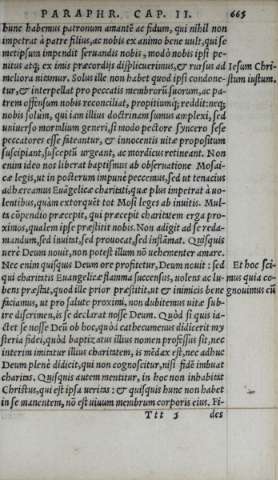 PARAPHR. CAP. II. 665
hunc habemus patronum amantē ac fidum, qui nihil non
impetrat à patre filius, ac nobis ex animo bene uult, qui se
metipsum impendit seruandis nobis, modò nobis ipsi pe-
nitus atq; ex imis præcordijs displicuerimus, & rursus ad
meliora nitimur. Solus ille non habet quod ipsi condone-
tur, & interpellat pro peccatis membrorũ suorum, ac pa-
trem offensum nobis reconciliat, propitiumq; reddit: neq;
nobis solùm, qui iam illius doctrinam sumus amplexi, sed
uniuerso mortalium generi, si modo pectore syncero sese
peccatores esse fateantur, & innocentis uitæ propositum
suscipiant, susceptũ urgeant, ac mordicus retineant. Non
enim ideo nos liberat baptismus ab obseruatione Mosai-
cæ legis, ut in posterum impunè peccemus, sed ut tenacius
adhæreamus Euãgelicæ charitati, quæ plus impetrat à uo-
lentibus, quàm extorquēt tot Mosi leges ab inuitis. Mul-
ta cõpendio præcepit, qui præcepit charitatem erga pro-
ximos, qualem ipse præstitit nobis. Non adigit ad se reda-
mandum, sed inuitat, sed prouocat, sed inflãmat. Quisquis
nerè Deum nouit, non potest illum nõ uehementer amare.
Nec enim quisquis Deum ore profitetur, Deum nouit: sed
qui charitatis Euangelicæ flamma succensus, uolens ac lu-
bens præstat, quod ille prior præstitit, ut & inimicis bene
faciamus, ut pro salute proximi, non dubitemus uitæ sub-
ire discrimen, is se declarat nosse Deum. Quòd si quis ia-
ctet se nosse Deũ ob hoc, quòd cathecumenus didicerit my
steria fidei, quòd baptizatus illius nomen professus sit, nec
interim imitatur illius charitatem, is mēdax est, nec adhuc
Deum plenè didicit, qui non cognoscitur, nisi fidē imbuat
charitas. Quisquis autem mentitur, in hoc non inhabitat
Christus, qui est ipsa ueritas: & quisquis hunc non habet
in se manentem, nõ est uiuum membrum corporis eius. Fi-
Ttt 5 des
Iesum Chri-
stum iustum.
Et hoc sci-
mus quia co-
gnouimus cũ